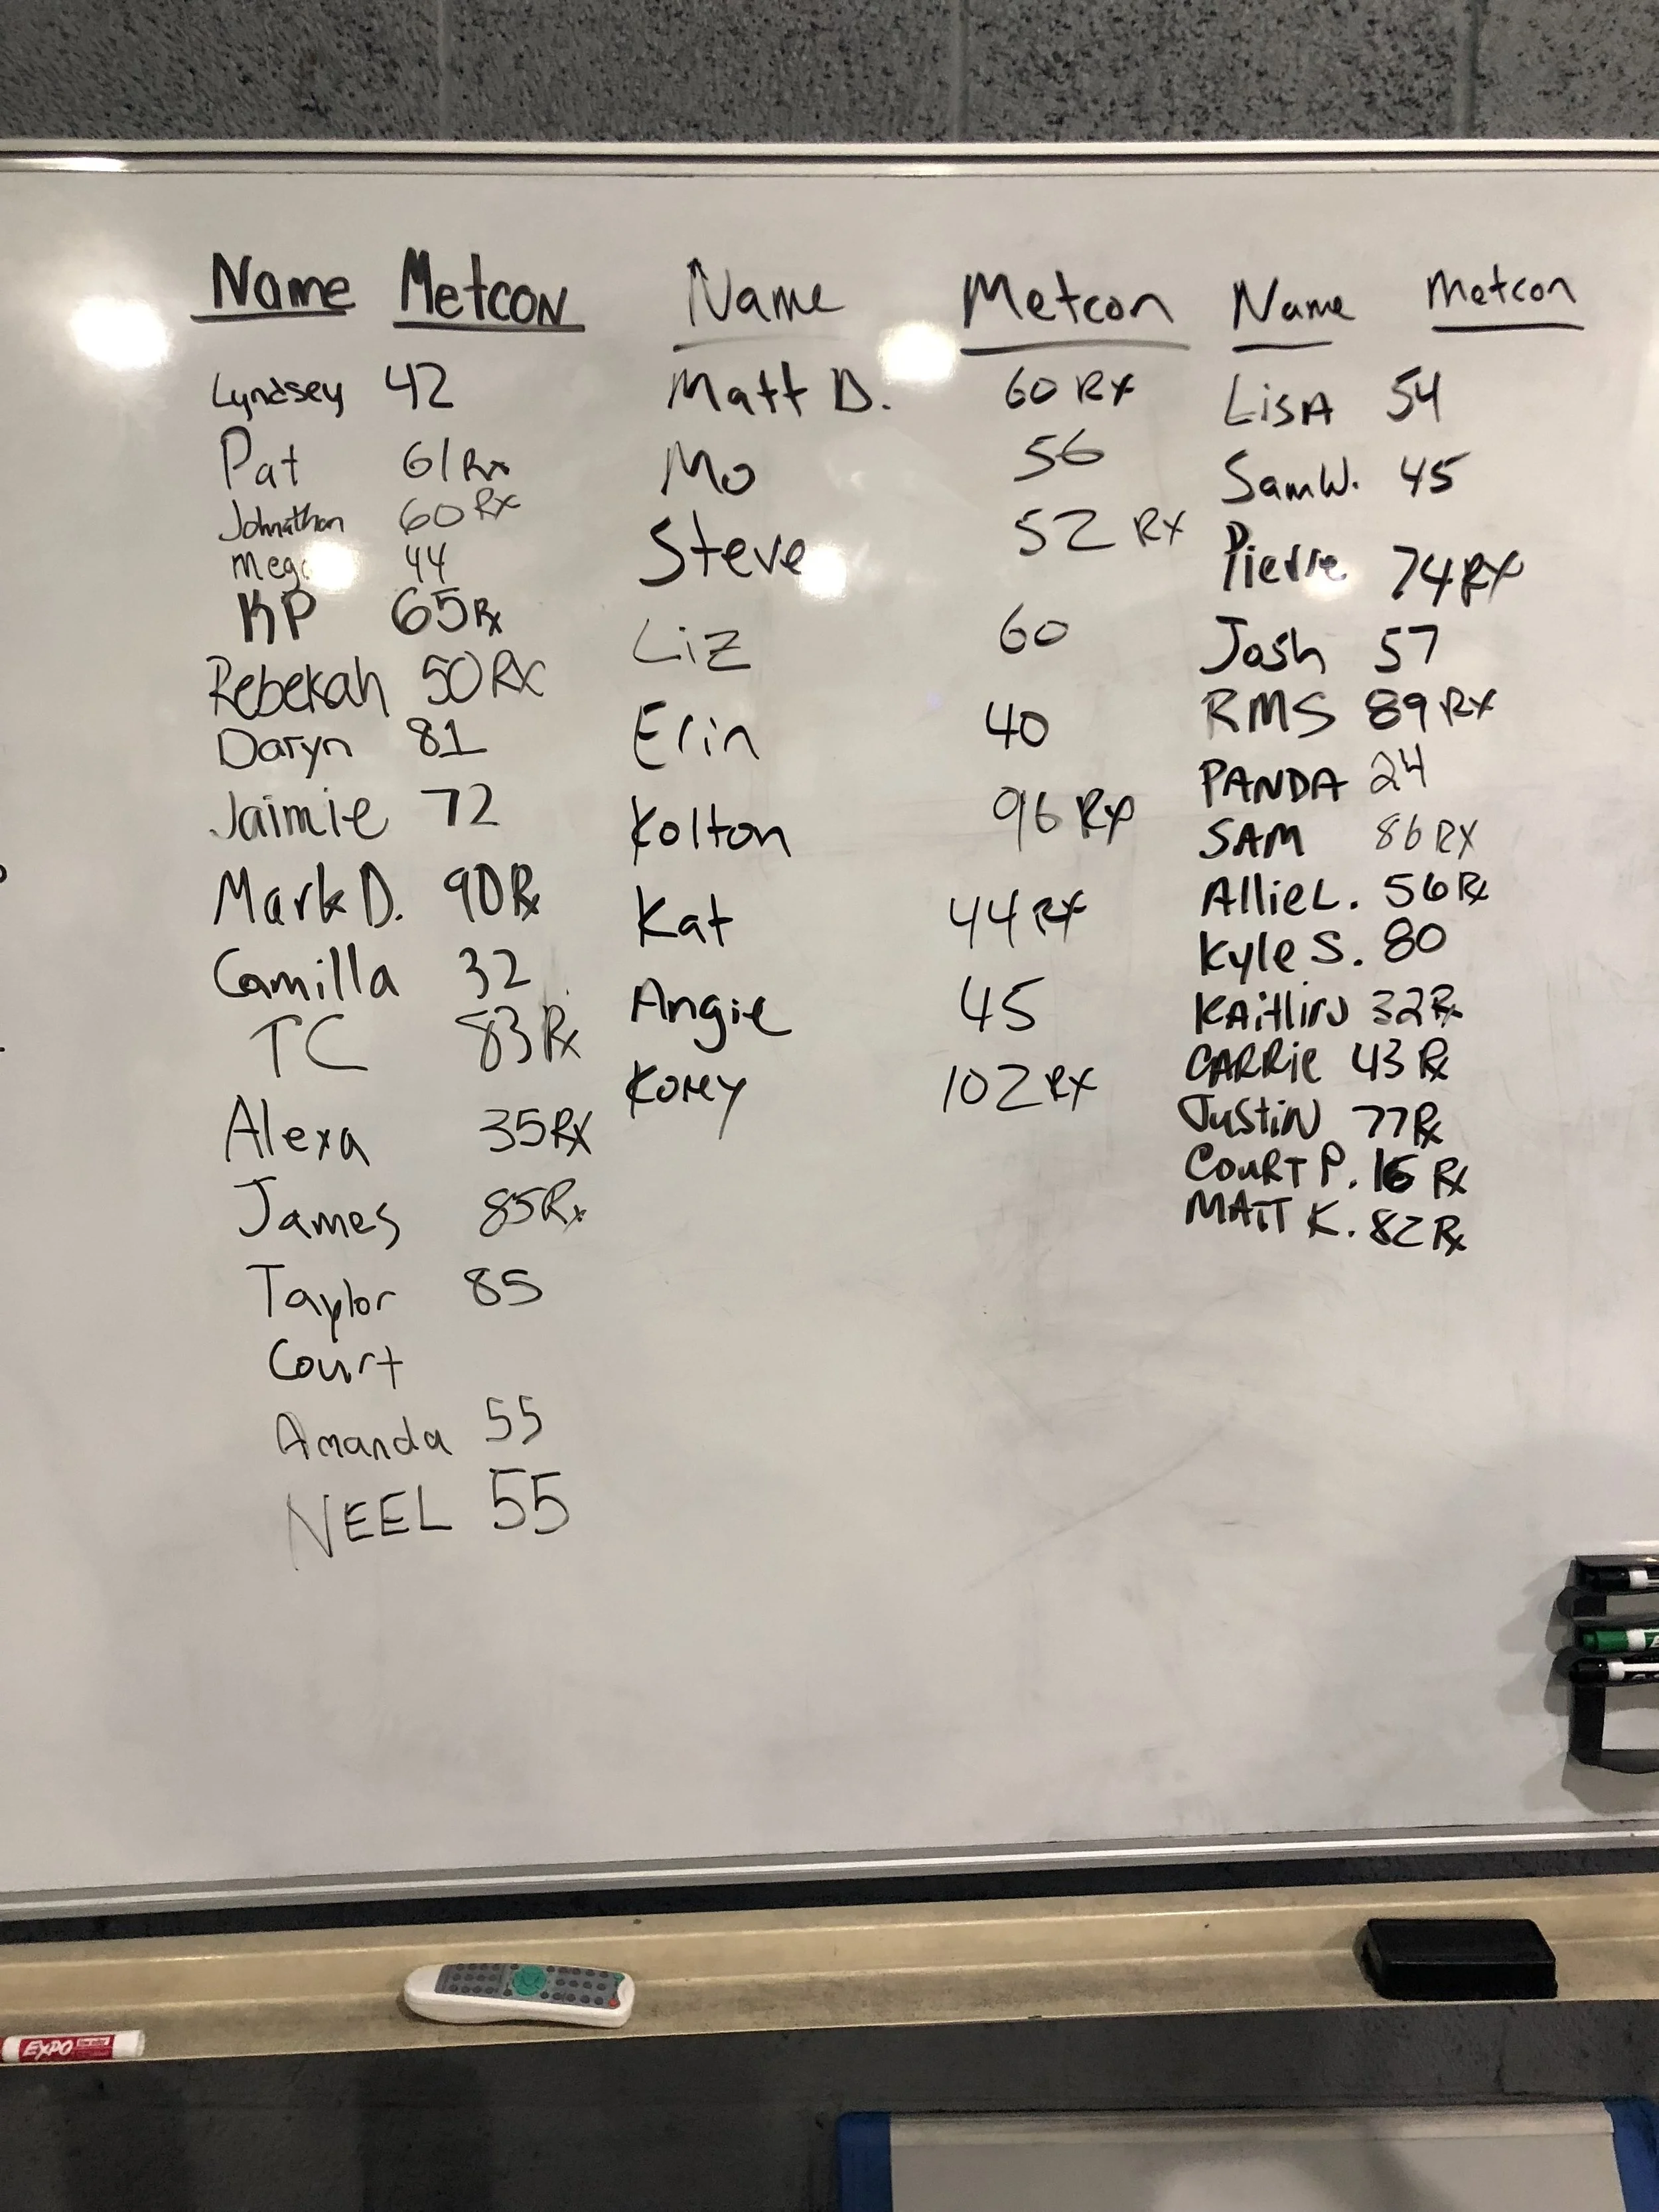 Name Metcon
Lyndsey 42
Pat 61 Rx
Johnathan 60 Rx
44
KP 65 Rx
Rebekah 50 RX
Daryn 81
Jaimie 72
Mark D. 90 Rx
Camilla 32
TC 83 Rx
Alexa 35 RX
James 85 Rx
Taylor 85
Court
Amanda 55
NEEL 55
Name Metcon
Matt D. 60 RX
Mo 56
Steve 52 RX
Liz 60
Erin 40
Kolton 96 RX
Kat 44 RX
Angie 45
Korey 102 RX
Name Metcon
LisA 54
Sam W. 45
Pierre 74 RX
Josh 57
RMS 89 RX
PANDA 24
SAM 86 RX
AllieL. 56 Rx
Kyle S. 80
KAitliN 32 Rx
CARRie 43 Rx
JustiN 77 Rx
COURT P. 16 Rx
MATT K. 82 Rx
EXPO